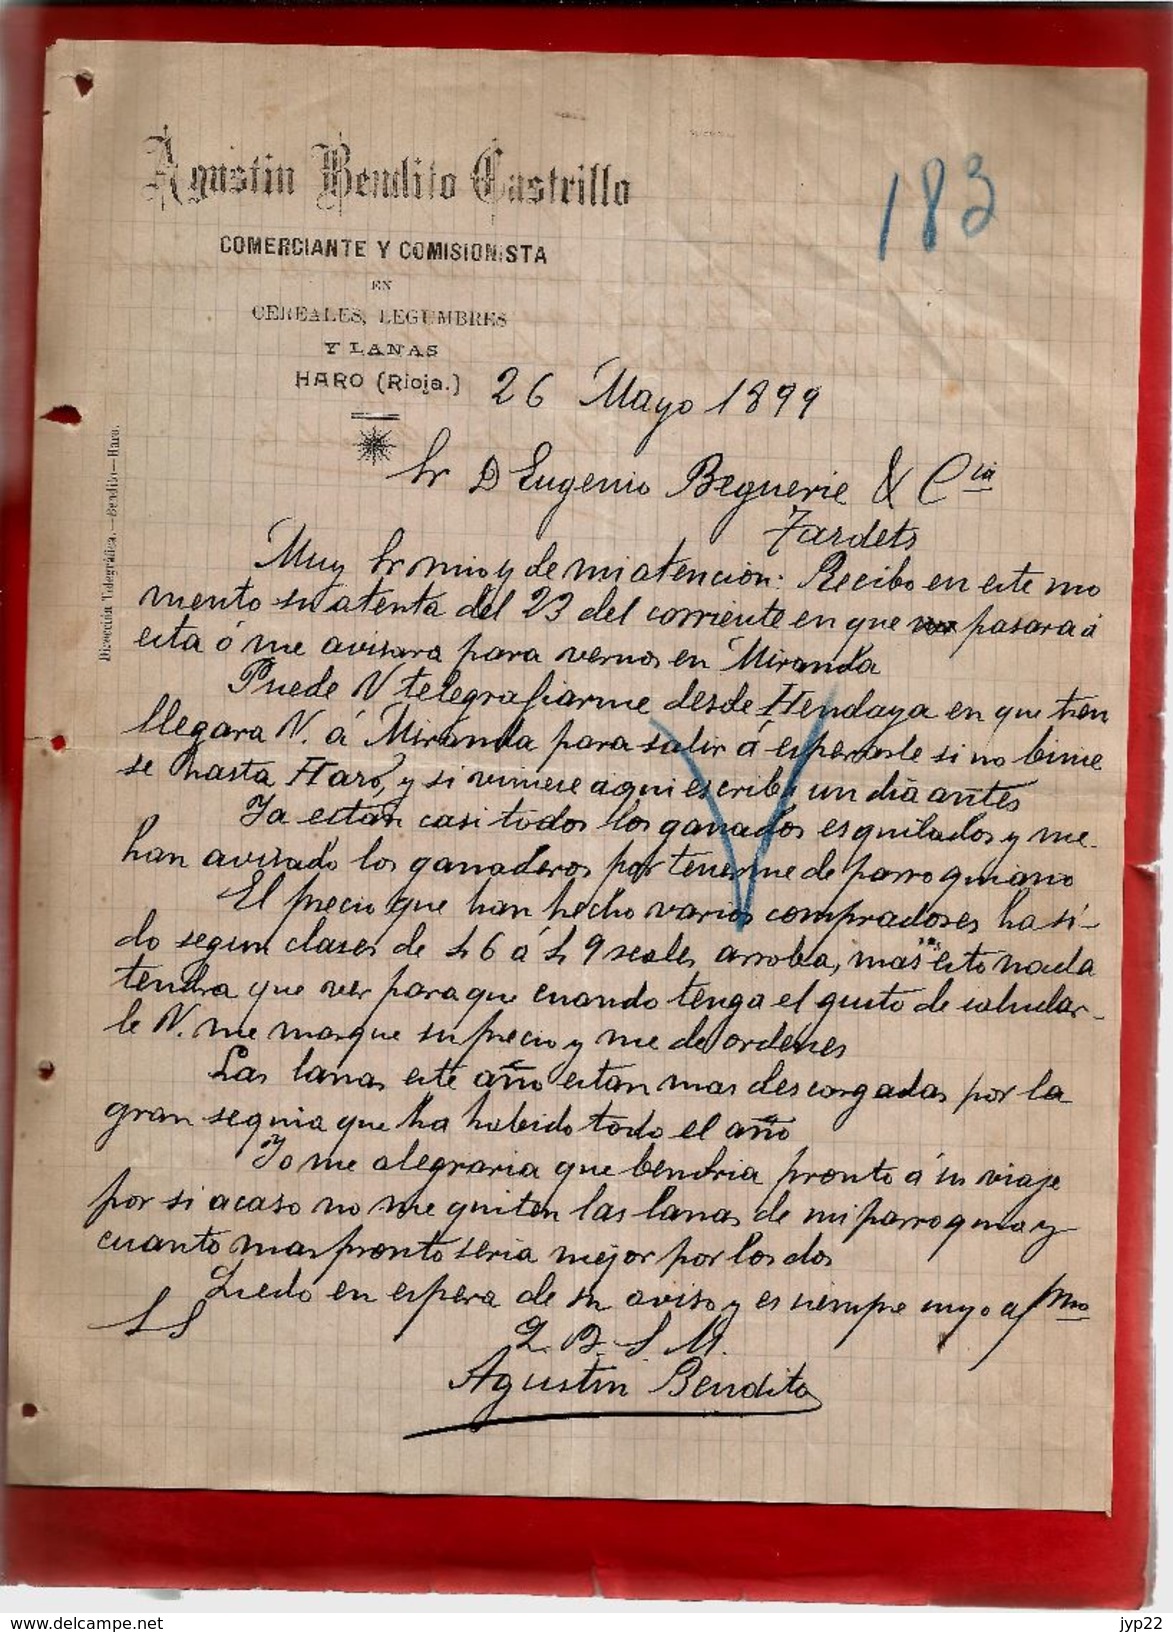 Agustin Bendito Castrillo
183
COMERCIANTE Y COMISIONISTA
EN
CEREALES, LEGUMBRES
Y LANAS
HARO (Rioja.) 26 Mayo 1899
Dirección Telegráfica.—Bendito—Haro.
Sr D Eugenio Beguerie & Cia
Tardets
Muy Sr mio y de mi atencion: Recibo en este mo
mento su atenta del 23 del corriente en que pasara á
esta ó me avisara para vernos en Miranda
Puede V telegrafiarme desde Hendaya en que tren
llegara V. á Miranda para salir á esperarle si no binie
se hasta Haro, y si viniese aqui escriba un dia antes
Ya estan casi todos los ganados esquilados y me
han avisado los ganaderos por tenerme de parroquiano
El precio que han hecho varios compradores ha si-
do segun clases de 46 á 49 reales arroba, mas esto nada
tendra que ver para que cuando tenga el gusto de saludar-
le V. me marque su precio y me de ordenes
Las lanas este año estan mas descargadas por la
gran sequia que ha habido todo el año
Yo me alegraria que bendria pronto á su viaje
por si acaso no me quiten las lanas de mi parroquia y
cuanto mas pronto seria mejor por los dos
Quedo en espera de su aviso y es siempre suyo afmo
S S
Q. B. S. M.
Agustin Bendito
www.delcampe.net
jyp22